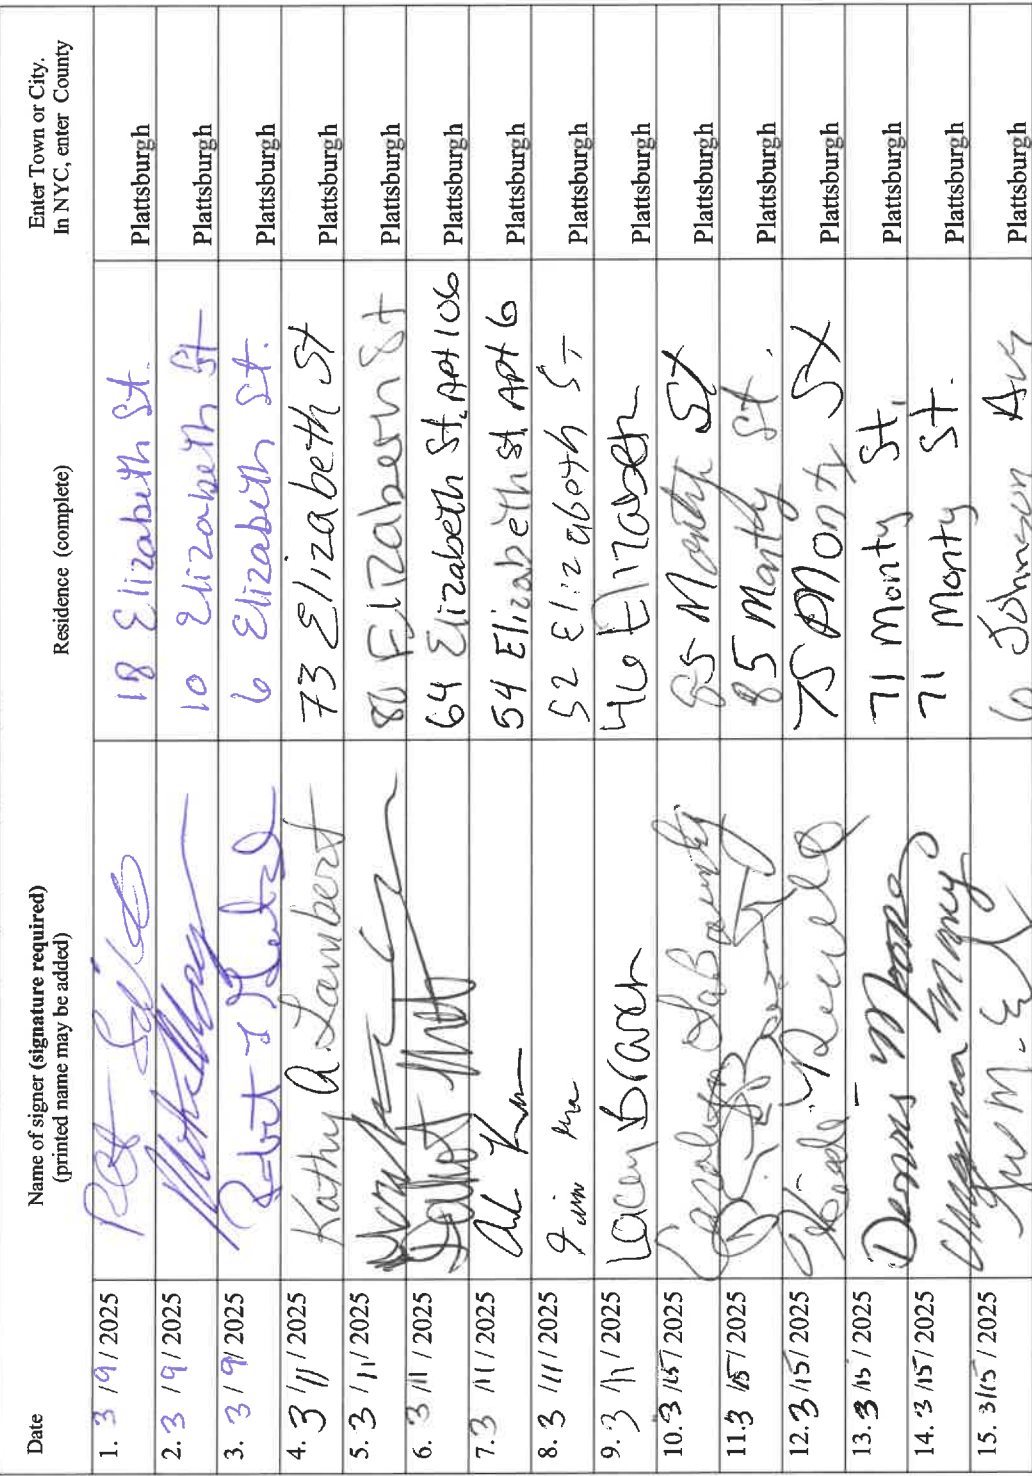 Date Name of signer (signature required) Residence (complete) Enter Town or City.
(printed name may be added) In NYC, enter County
1. 3/9/2025 18 Elizabeth St. Plattsburgh
2. 3/9/2025 10 Elizabeth St Plattsburgh
3. 3/9/2025 Robert 6 Elizabeth St. Plattsburgh
4. 3/11/2025 Kathy A. Lambert 73 Elizabeth St Plattsburgh
5. 3/11/2025 80 Elizabeth St Plattsburgh
6. 3/11/2025 64 Elizabeth St. Apt 106 Plattsburgh
7. 3/11/2025 54 Elizabeth St Apt 6 Plattsburgh
8. 3/11/2025 52 Elizabeth ST Plattsburgh
9. 3/11/2025 Lacey Branch 46 Elizabeth Plattsburgh
10. 3/15/2025 Carolyn LaBounty 85 Monty St Plattsburgh
11. 3/15/2025 85 Monty St. Plattsburgh
12. 3/15/2025 75 Monty St Plattsburgh
13. 3/15/2025 Dennis 71 Monty St. Plattsburgh
14. 3/15/2025 71 Monty St. Plattsburgh
15. 3/15/2025 6 Johnson Ave Plattsburgh